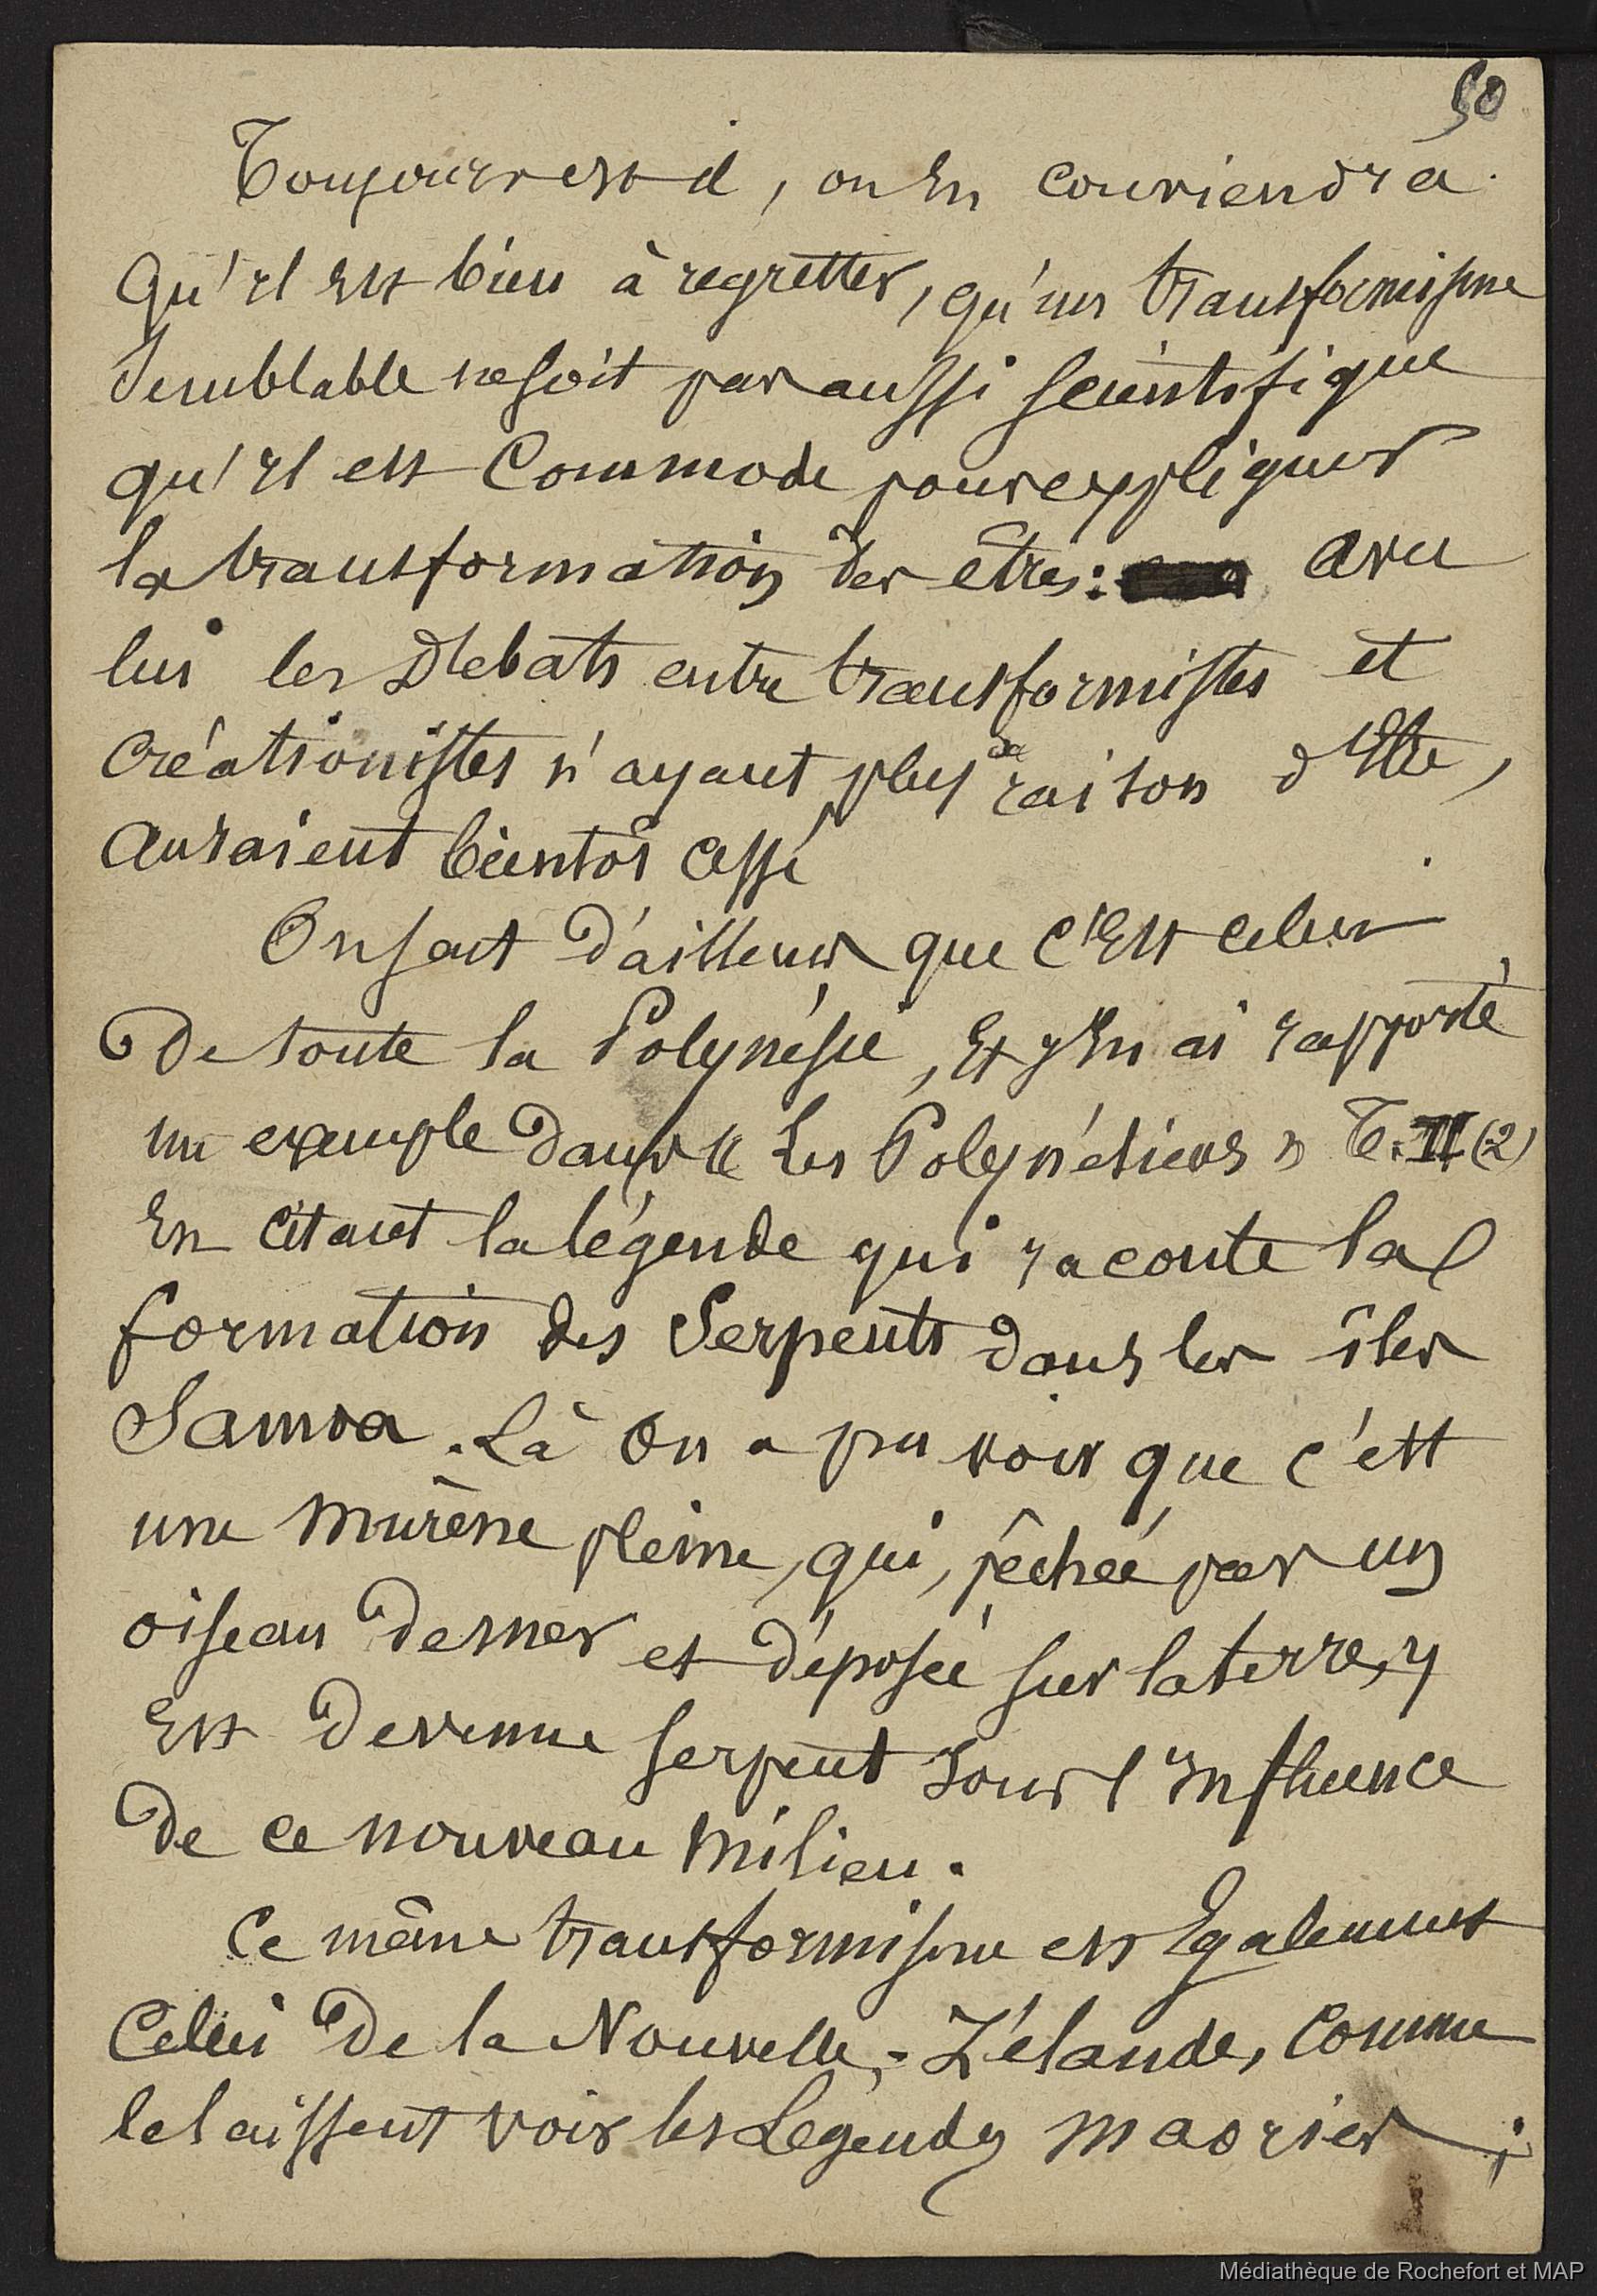 50
Toujours est il, on en conviendra
Qu'il est bien à regretter, qu'un transformisme
Semblable ne soit pas aussi scientifique
qu'il est Commode pour expliquer
la transformation des êtres: avec
lui les Débats entre transformistes et
Créationistes n'ayant plus de raison d'Etre,
Auraient bientôt cessé
On sait d'ailleurs que c'Est celui
De toute la Polynésie, Et j'En ai rapporté
un exemple Dans « Les Polynésiens » T. II (2)
En Citant la légende qui raconte la
formation des Serpents dans les îles
Samoa. Là On a pu voir que c'est
une Murène pleine, qui, pêchée par un
oiseau De mer et Déposée sur la terre, y
Est Devenue serpent sous l'Influence
De ce nouveau Milieu.
Ce même transformisme est Egalement
Celui De la Nouvelle-Zélande, Comme
le laissent voir les Légendes Maories;
Médiathèque de Rochefort et MAP